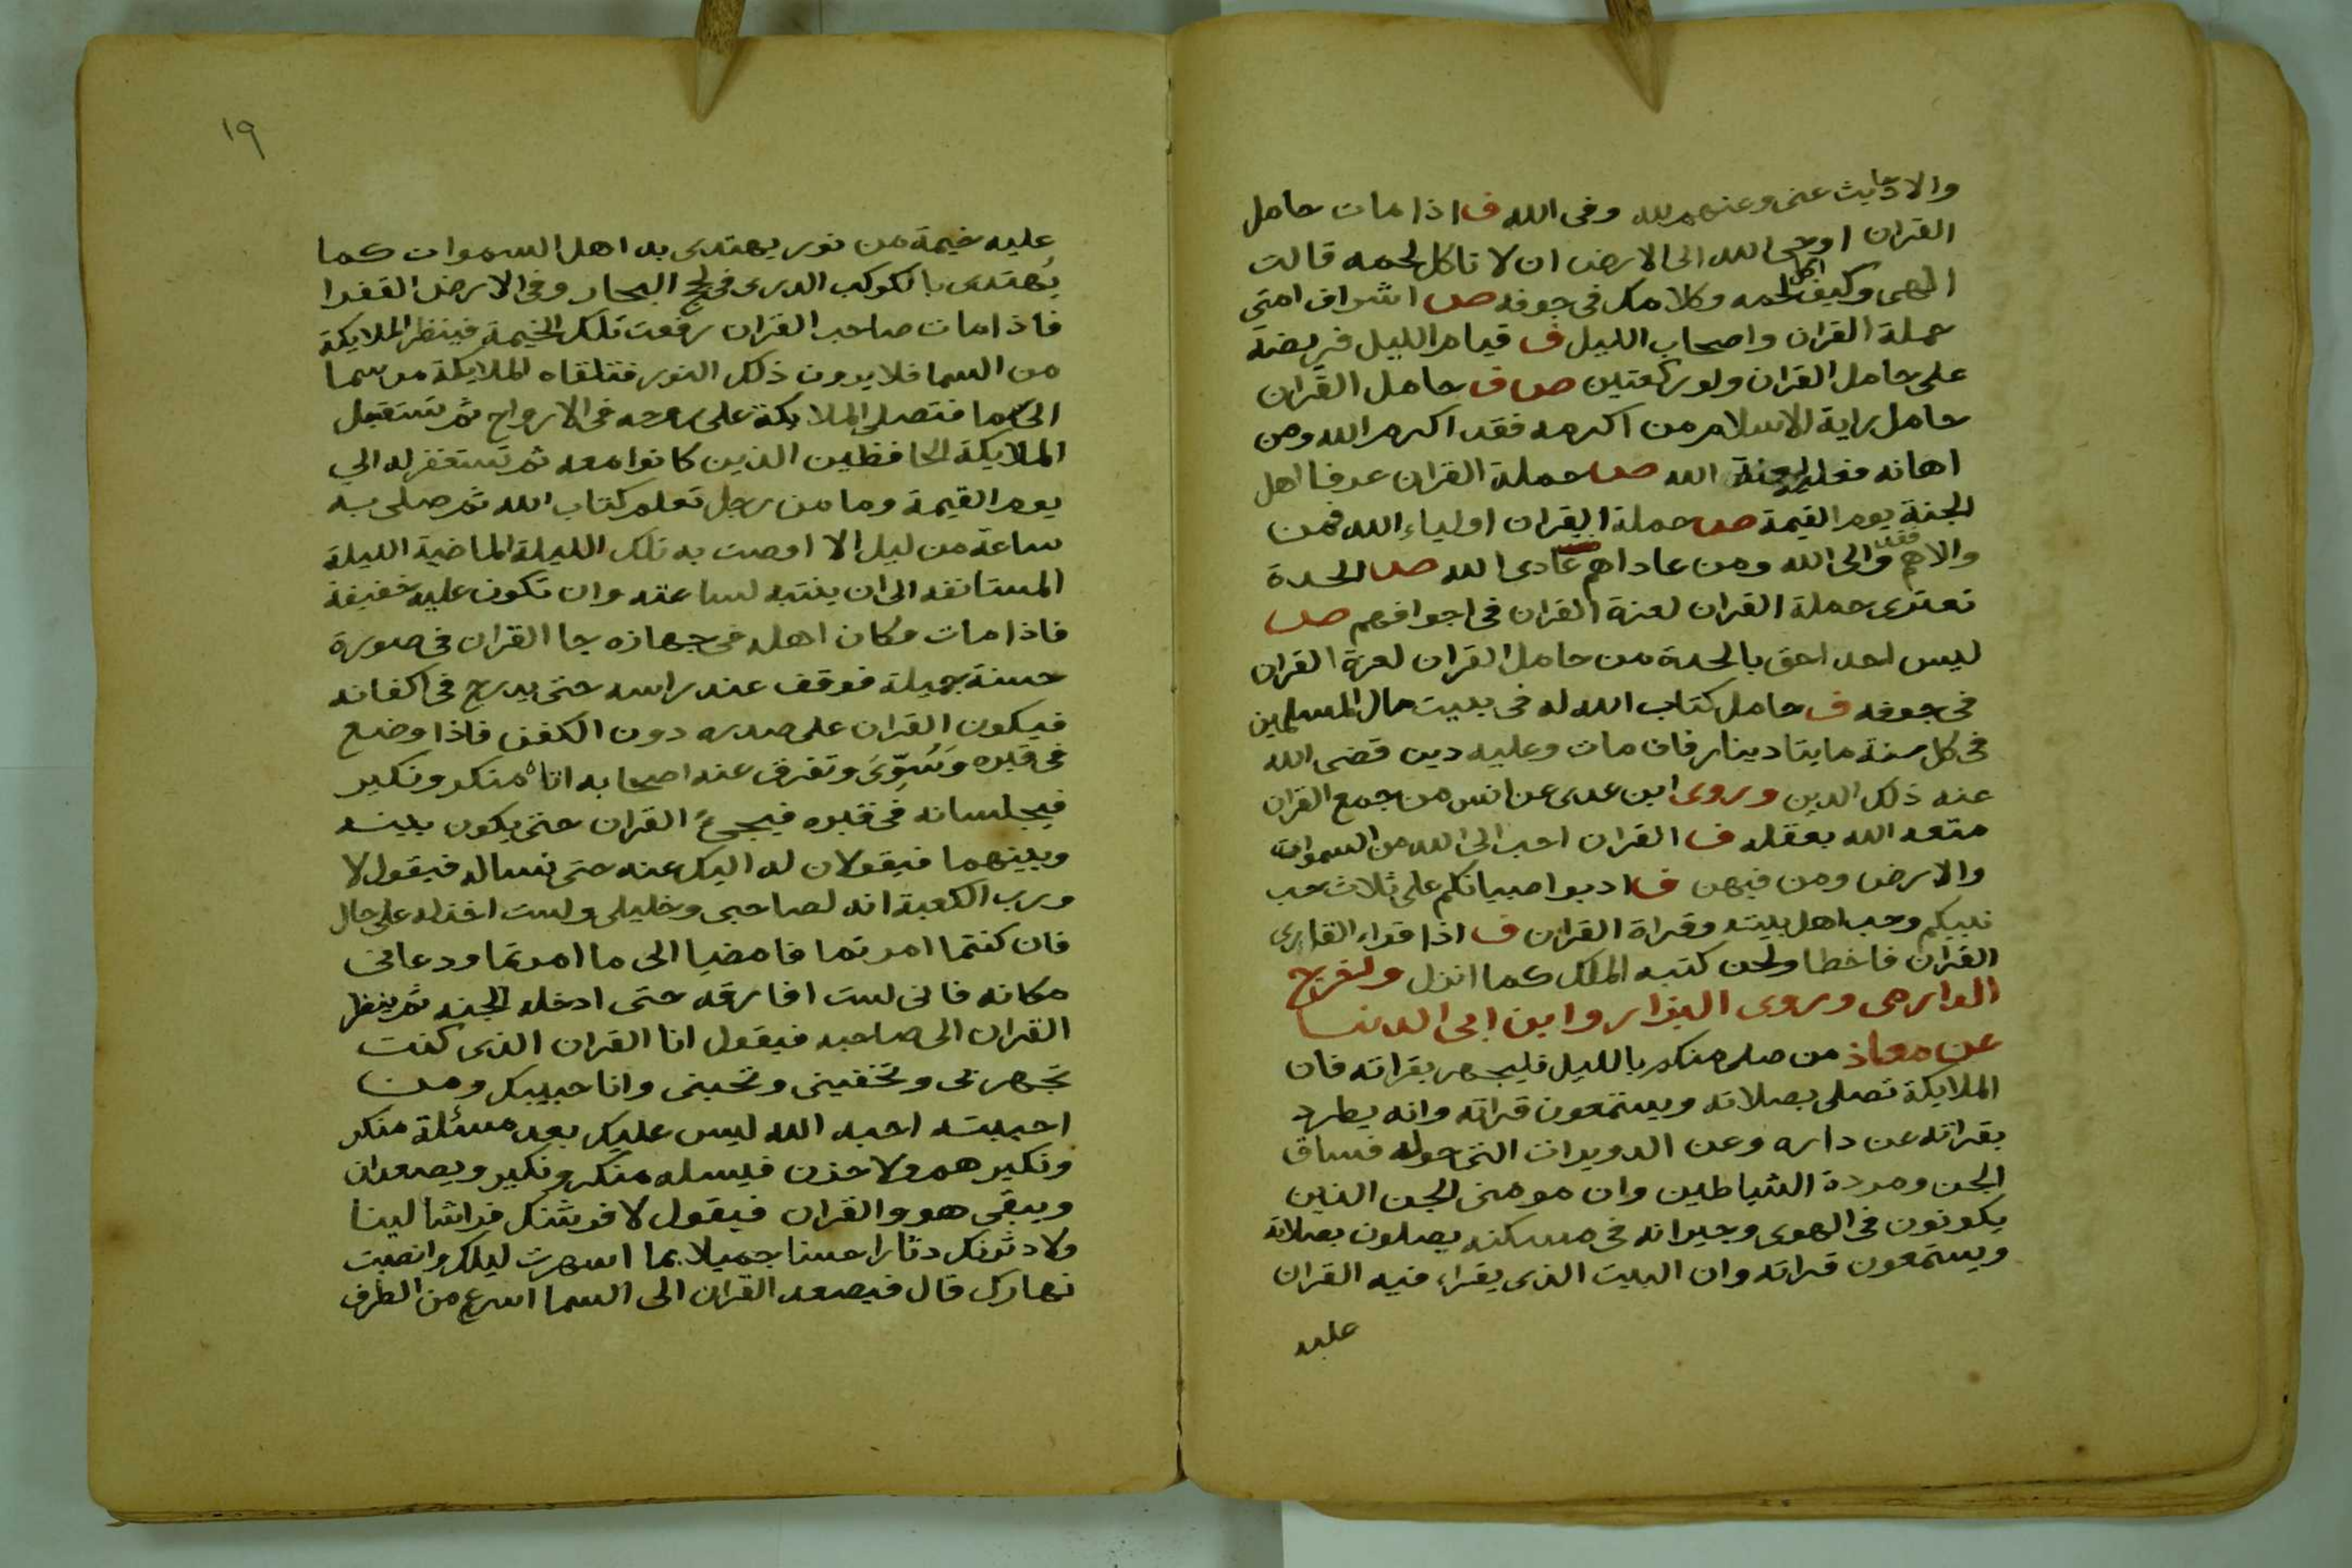 والاحاديث عنى وعنهم لله وفى الله ف اذا مات حامل
القران اوحى الله الى الارض ان لا تاكل لحمه قالت
الهى وكيف اكل لحمه وكلامك فى جوفه ص اشراف امتى
حملة القران واصحاب الليل ف قيام الليل فريضة
على حامل القران ولو ركعتين ص ف حامل القران
حامل راية الاسلام من اكرمه فقد اكرم الله ومن
اهانه فعليه لعنة الله ص حملة القران عرفا اهل
الجنة يوم القيمة ص حملة القران اولياء الله فمن
والاهم فقد والى الله ومن عاداهم عادى الله ص الحدة
تعترى حملة القران لعزة القران فى اجوافهم ص
ليس احد احق بالحدة من حامل القران لعزة القران
فى جوفه ف حامل كتاب الله له فى بيت مال المسلمين
فى كل سنة مايتا دينار فان مات وعليه دين قضى الله
عنه ذلك الدين وروى ابن عدى عن انس من جمع القران
متعه الله بعقله ف القران احب الى الله من السموات
والارض ومن فيهن ف ادبوا صبيانكم على ثلاث حب
نبيكم وحب اهل بيته وقراة القران ف اذا قراء القارى
القران فاخطا ولحن كتبه الملك كما انزل
عن معاذ من صلى منكم بالليل فليجهر بقراته فان
الملايكة تصلى بصلاته ويستمعون قراته وانه يطرد
بقراته عن داره وعن الدويرات التى حوله فساق
الجن ومردة الشياطين وان مومنى الجن الذين
يكونون فى الهوى وجيرانه فى مسكنه يصلون بصلاته
ويستمعون قراته وان البيت الذى يقراء فيه القران
عليه
١٩
عليه خيمة من نور يهتدى به اهل السموات كما
يُهتدى بالكوكب الدرى فى لج البحار وفى الارض القفرا
فاذا مات صاحب القران رفعت تلك الخيمة فينظر الملايكة
من السما فلا يرون ذلك النور فتلقاه الملايكة من سما
الى سما فتصلى الملايكة على روحه فى الارواح ثم تستقبل
الملايكة الحافظين الذين كانوا معه ثم تستغفر له الي
يوم القيمة وما من رجل تعلم كتاب الله ثم صلى به
ساعة من ليل الا اوصت به تلك الليلة الماضية الليلة
المستانفه الى ان ينتبه لساعته وان تكون عليه خفيفة
فاذا مات وكان اهله فى جهازه جا القران فى صورة
حسنة جميلة فوقف عند راسه حتى يدرج فى اكفانه
فيكون القران على صدره دون الكفن فاذا وضع
فى قبره وَسُوِّىَ وتفرق عنه اصحابه اتاه منكر ونكير
فيجلسانه فى قبره فيجىء القران حتى يكون بينه
وبينهما فيقولان له اليك عنه حتى نساله فيقول لا
ورب الكعبة انه لصاحبى وخليلى ولست اخذله على حال
فان كنتما امرتما فامضيا الى ما امرتما ودعانى
مكانه فانى لست افارقه حتى ادخله الجنه ثم ينظر
القران الى صاحبه فيقول انا القران الذى كنت
تجهر بى وتخفينى وتحبنى وانا حبيبك ومن
احببته احبه الله ليس عليك بعد مسئلة منكر
ونكير هم ولا حزن فيسله منكر ونكير ويصعدان
ويبقى هو والقران فيقول لافرشنك فراشا لينا
ولادثرنك دثارا حسنا جميلا بما اسهرت ليلك وانصبت
نهارك قال فيصعد القران الى السما اسرع من الطرف